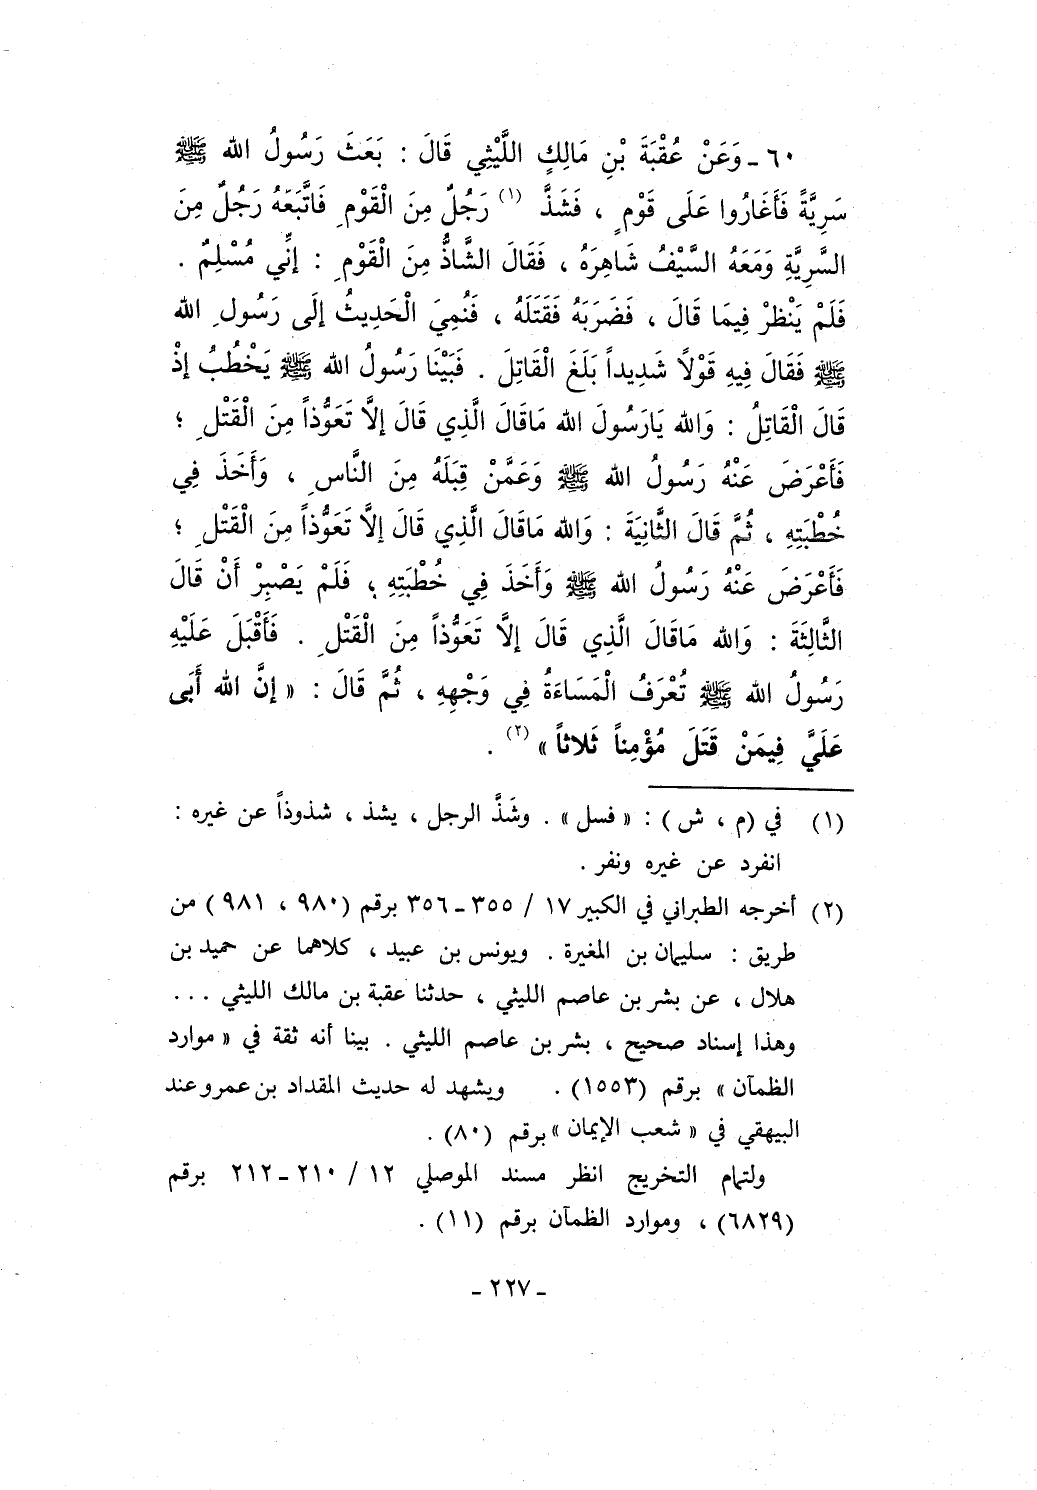 ٦٠ - وَعَنْ عُقْبَةَ بْنِ مَالِكٍ اللَّيْثِي قَالَ : بَعَثَ رَسُولُ الله ﷺ
سَرِيَّةً فَأَغَارُوا عَلَى قَوْمٍ ، فَشَذَّ (١) رَجُلٌ مِنَ الْقَوْمِ فَاتَّبَعَهُ رَجُلٌ مِنَ
السَّرِيَّةِ وَمَعَهُ السَّيْفُ شَاهِرَهُ ، فَقَالَ الشَّاذُّ مِنَ الْقَوْمِ : إنِّي مُسْلِمٌ .
فَلَمْ يَنْظُرْ فِيمَا قَالَ ، فَضَرَبَهُ فَقَتَلَهُ ، فَنُمِيَ الْحَدِيثُ إلَى رَسُولِ الله
ﷺ فَقَالَ فِيهِ قَوْلًا شَدِيداً بَلَغَ الْقَاتِلَ . فَبَيْنَا رَسُولُ الله ﷺ يَخْطُبُ إذْ
قَالَ الْقَاتِلُ : وَالله يَارَسُولَ الله مَاقَالَ الَّذِي قَالَ إلاَّ تَعَوُّذاً مِنَ الْقَتْلِ ؛
فَأَعْرَضَ عَنْهُ رَسُولُ الله ﷺ وَعَمَّنْ قِبَلَهُ مِنَ النَّاسِ ، وَأَخَذَ فِي
خُطْبَتِهِ ، ثُمَّ قَالَ الثَّانِيَةَ : وَالله مَاقَالَ الَّذِي قَالَ إلاَّ تَعَوُّذاً مِنَ الْقَتْلِ ؛
فَأَعْرَضَ عَنْهُ رَسُولُ الله ﷺ وَأَخَذَ فِي خُطْبَتِهِ ؛ فَلَمْ يَصْبِرْ أَنْ قَالَ
الثَّالِثَةَ : وَالله مَاقَالَ الَّذِي قَالَ إلاَّ تَعَوُّذاً مِنَ الْقَتْلِ . فَأَقْبَلَ عَلَيْهِ
رَسُولُ الله ﷺ تُعْرَفُ الْمَسَاءَةُ فِي وَجْهِهِ ، ثُمَّ قَالَ : « إنَّ الله أَبَى
عَلَيَّ فِيمَنْ قَتَلَ مُؤْمِناً ثَلاثاً » (٢) .
(١) في (م ، ش) : « فسل » . وشَذَّ الرجل ، يشذ ، شذوذاً عن غيره :
انفرد عن غيره ونفر .
(٢) أخرجه الطبراني في الكبير ١٧ / ٣٥٥ - ٣٥٦ برقم (٩٨٠ ، ٩٨١) من
طريق : سليمان بن المغيرة . ويونس بن عبيد ، كلاهما عن حميد بن
هلال ، عن بشر بن عاصم الليثي ، حدثنا عقبة بن مالك الليثي ...
وهذا إسناد صحيح ، بشر بن عاصم الليثي . بينا أنه ثقة في « موارد
الظمآن » برقم (١٥٥٣) . ويشهد له حديث المقداد بن عمرو عند
البيهقي في « شعب الإيمان » برقم (٨٠) .
ولتمام التخريج انظر مسند الموصلي ١٢ / ٢١٠ - ٢١٢ برقم
(٦٨٢٩) ، وموارد الظمآن برقم (١١) .
- ٢٢٧ -